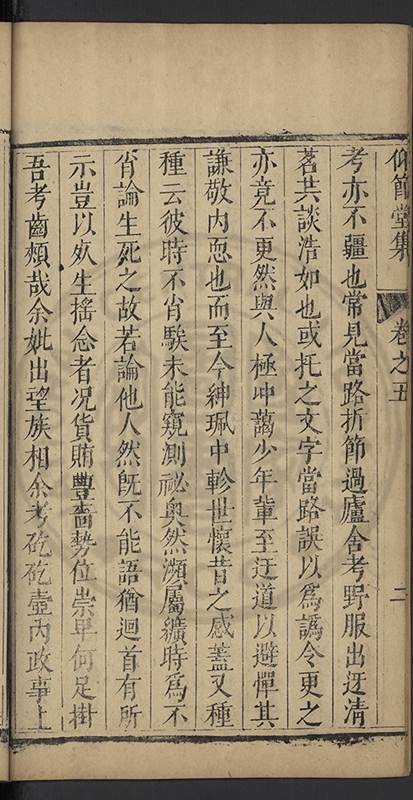 仰節堂集 卷之五 二
考亦不疆也常見當路折節過廬舍考野服出迓清
茗共談浩如也或托之文字當路誤以爲譌令更之
亦竟不更然與人極冲藹少年輩至迂道以避憚其
謙敬內恧也而至今紳珮中軫世懷昔之感蓋又種
種云彼時不肖騃未能窺測祕奥然瀕屬纊時爲不
肖論生死之故若論他人然旣不能語猶迴首有所
示豈以夾生搖念者况貨賄豐嗇勢位崇卑何足掛
吾考齒頰哉余妣出望族相余考矻矻壼內政事上